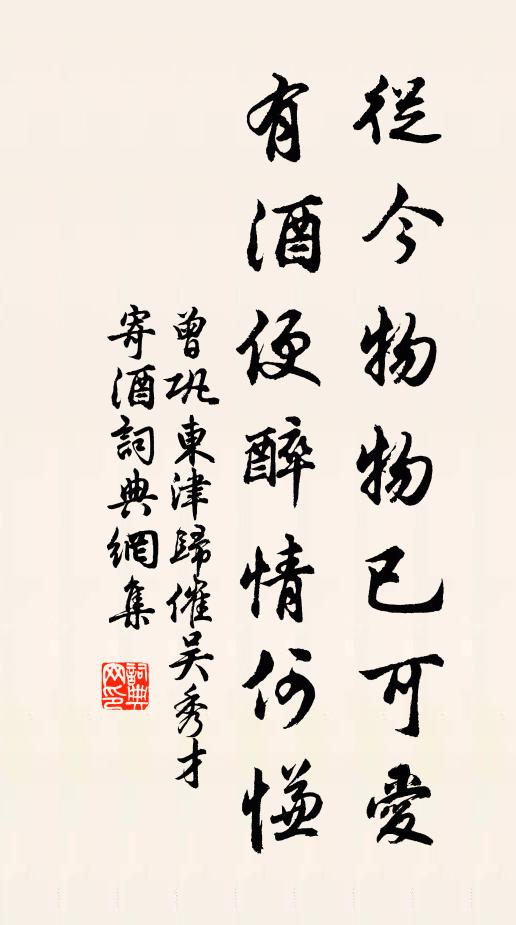 從今物物已可愛
有酒便醉情何慊
曾巩東津歸催吳秀才
寄酒詞典網集
詞典網印